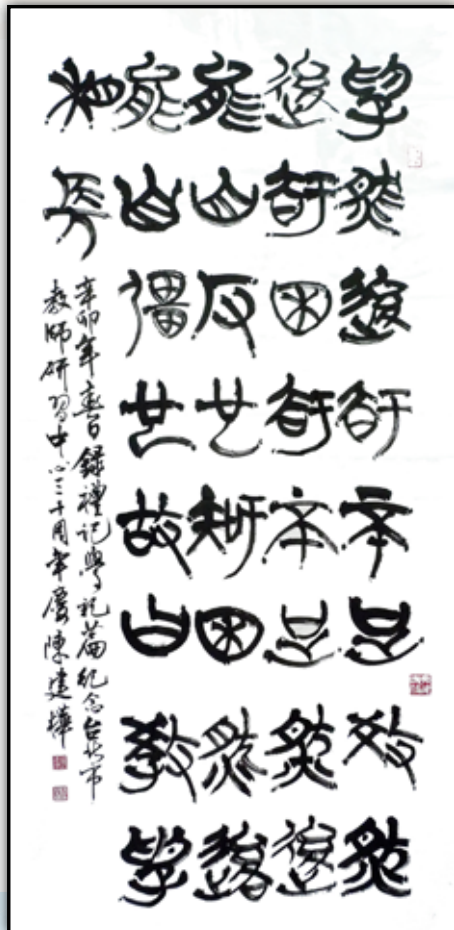 學然後知不足教然
後知困知不足然後
能自反也知困然後
能自彊也故曰教學
相長
辛卯年春日錄禮記學記篇紀念台北市
教師研習中心三十周年慶陳建樺